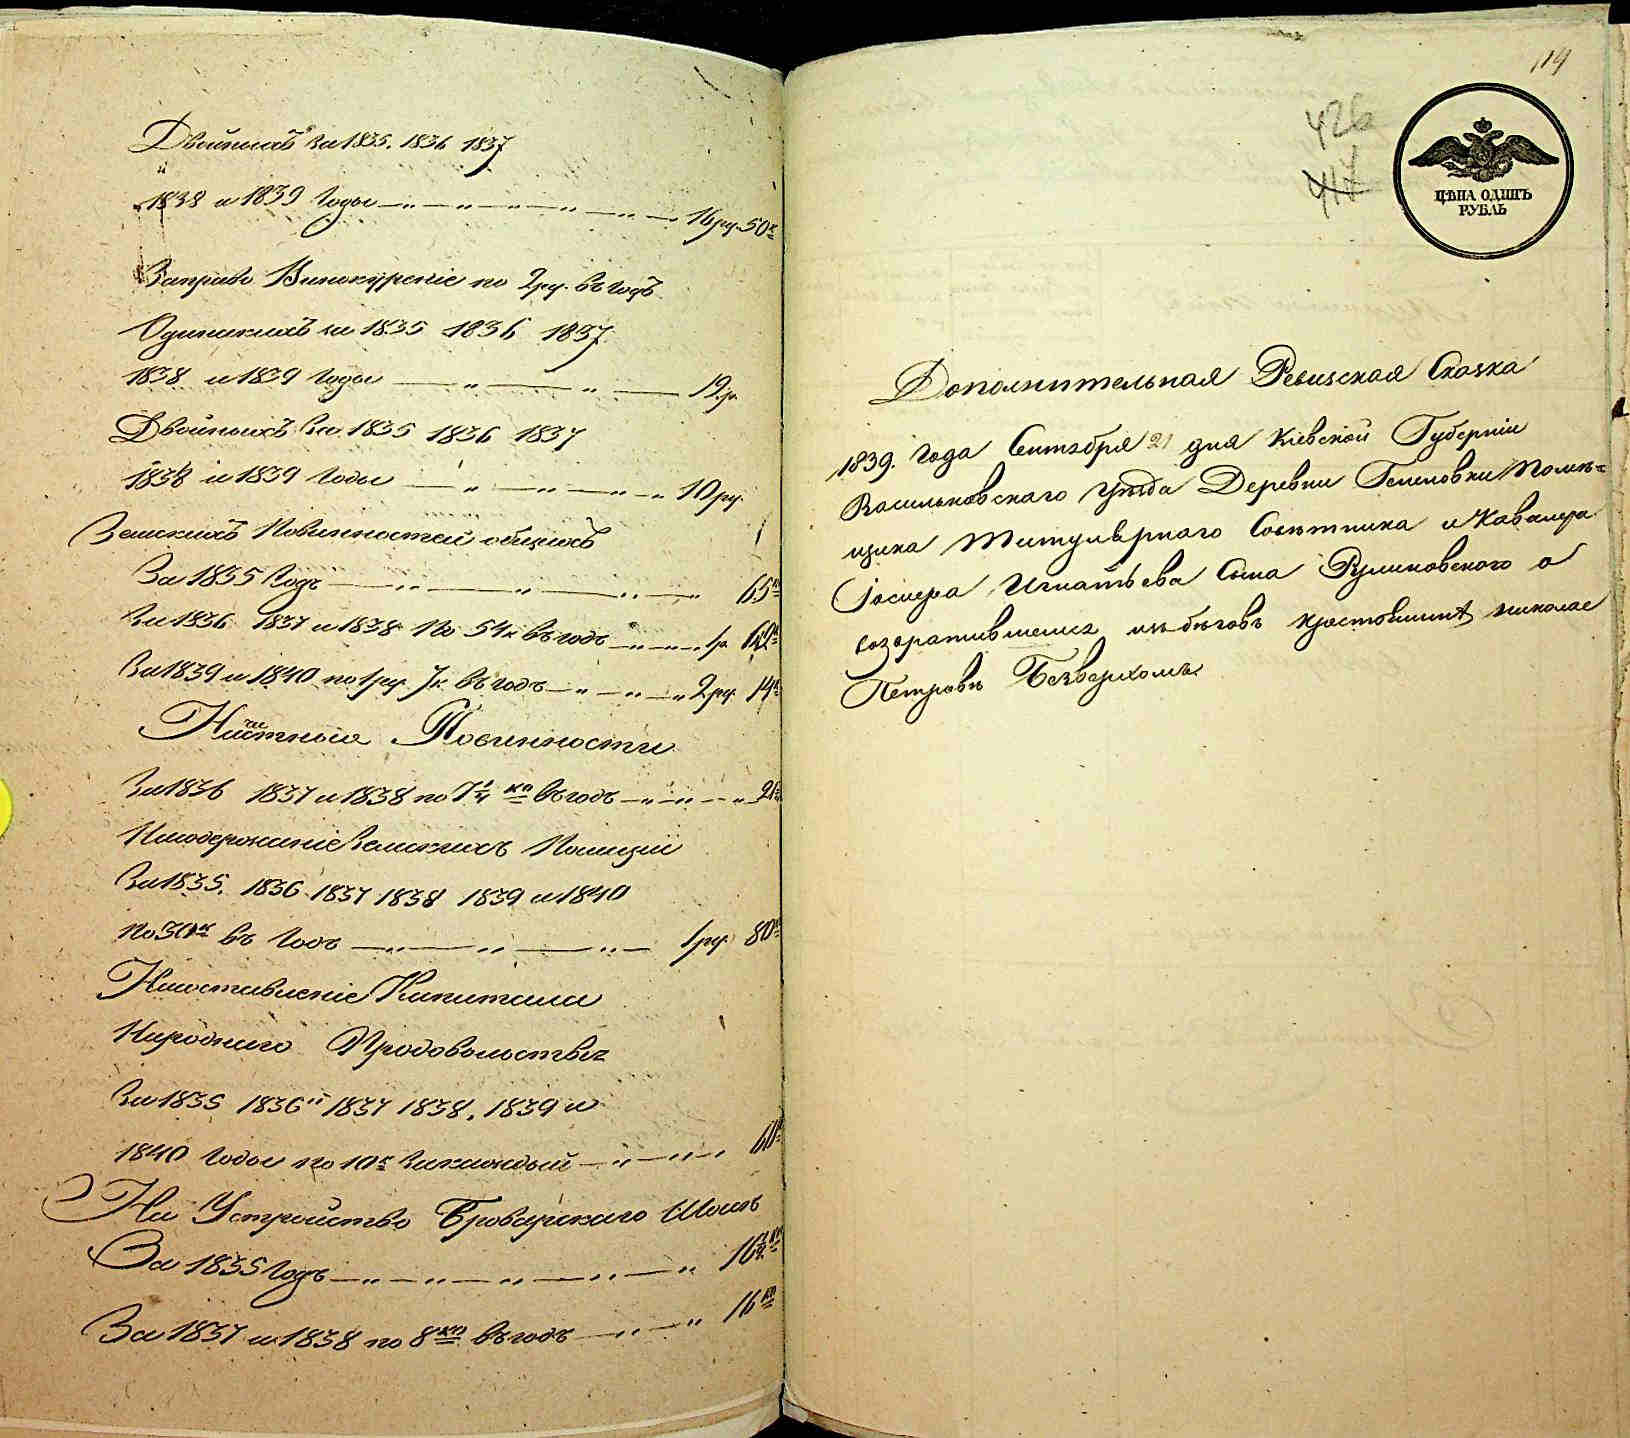 Двойныхъ за 1835. 1836 1837
и
1838 и 1839 Годы 16 ру. 50 к
За право Винокуреніе по 2 ру. въ годъ
Одинакихъ за 1835 1836 1837
1838 и 1839 Годы 12 р.
Двойныхъ за 1835 1836 1837
1838 и 1839 Годы 10 ру.
Земскихъ Повинностей общихъ
За 1835 Годъ 65 к
За 1836 1837 и 1838 по 54 к въ годъ 1 р. 62 к
За 1839 и 1840 по 1 ру. 7 к. въ годъ 2 ру. 14 к
Повинности
За 1836 1837 и 1838 по 7 1/4 ко въ годъ
На содержаніе Земскихъ Полиціи
За 1835. 1836 1837 1838 1839 и 1840
по 30 к въ Годъ 1 ру. 80 к
На составленіе Капитала
Народнаго Продовольствія
За 1835 1836 1837 1838. 1839 и
1840 Годы по 10 к за каждый 60 к
На Устройство Броварскаго Шоссе
За 1835 Годъ 16 1/2 ко
За 1837 и 1838 по 8 ко въ годъ 16 ко
119
426
417
ЦѢНА ОДИНЪ
РУБЛЬ
Дополнительная Ревизская Сказка
1839. Года Сентября 21 дня Кіевской Губерніи
Васильковскаго уѣзда Деревни Помѣ=
щика Титулярнаго Совѣтника и Кавалера
Игнатьева Сына Руликовского о
возвратившемся изъ бѣговъ крестьянинѣ Николае
Петровѣ Безверхомъ